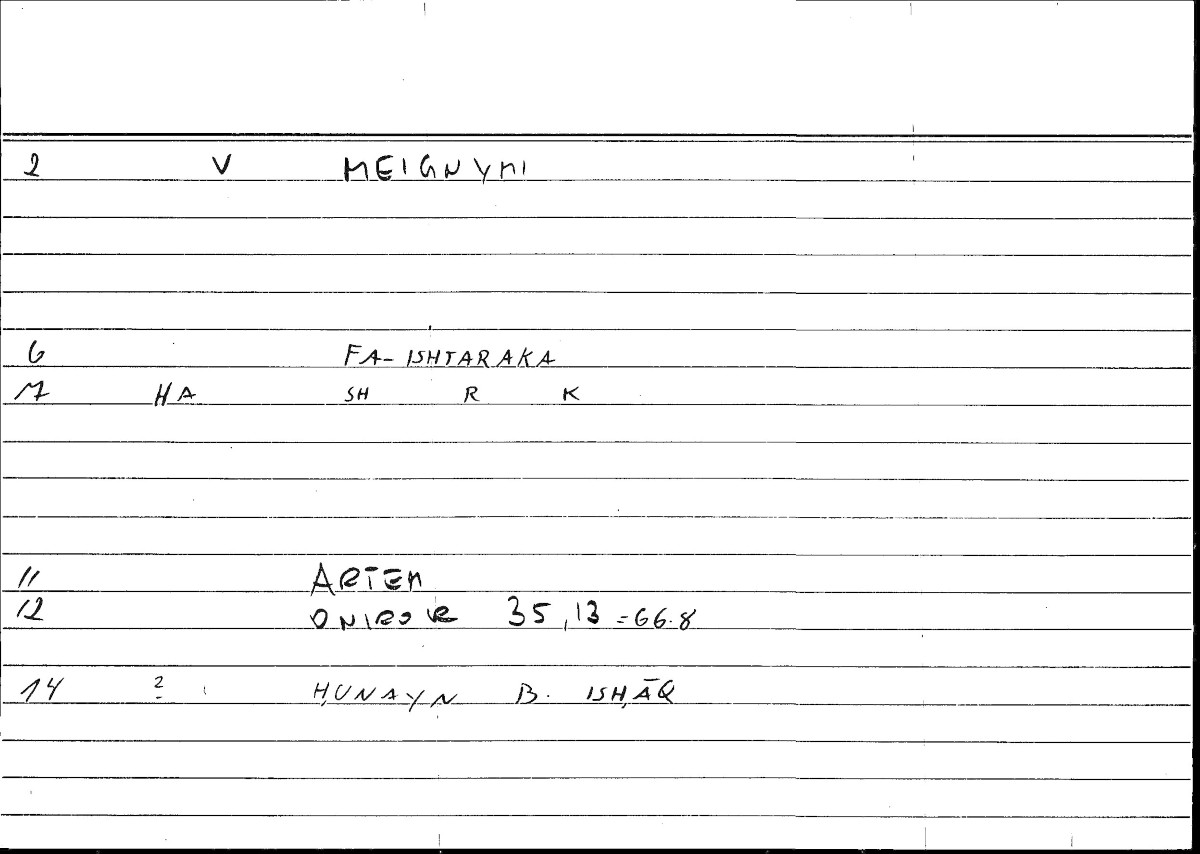 2 V MEIGNYMI
6 FA-ISHTARAKA
7 HA SH R K
11 ARTEM
12 ONIROK 35,13 = 66.8
14 2 ḤUNAYN B. ISḤĀQ